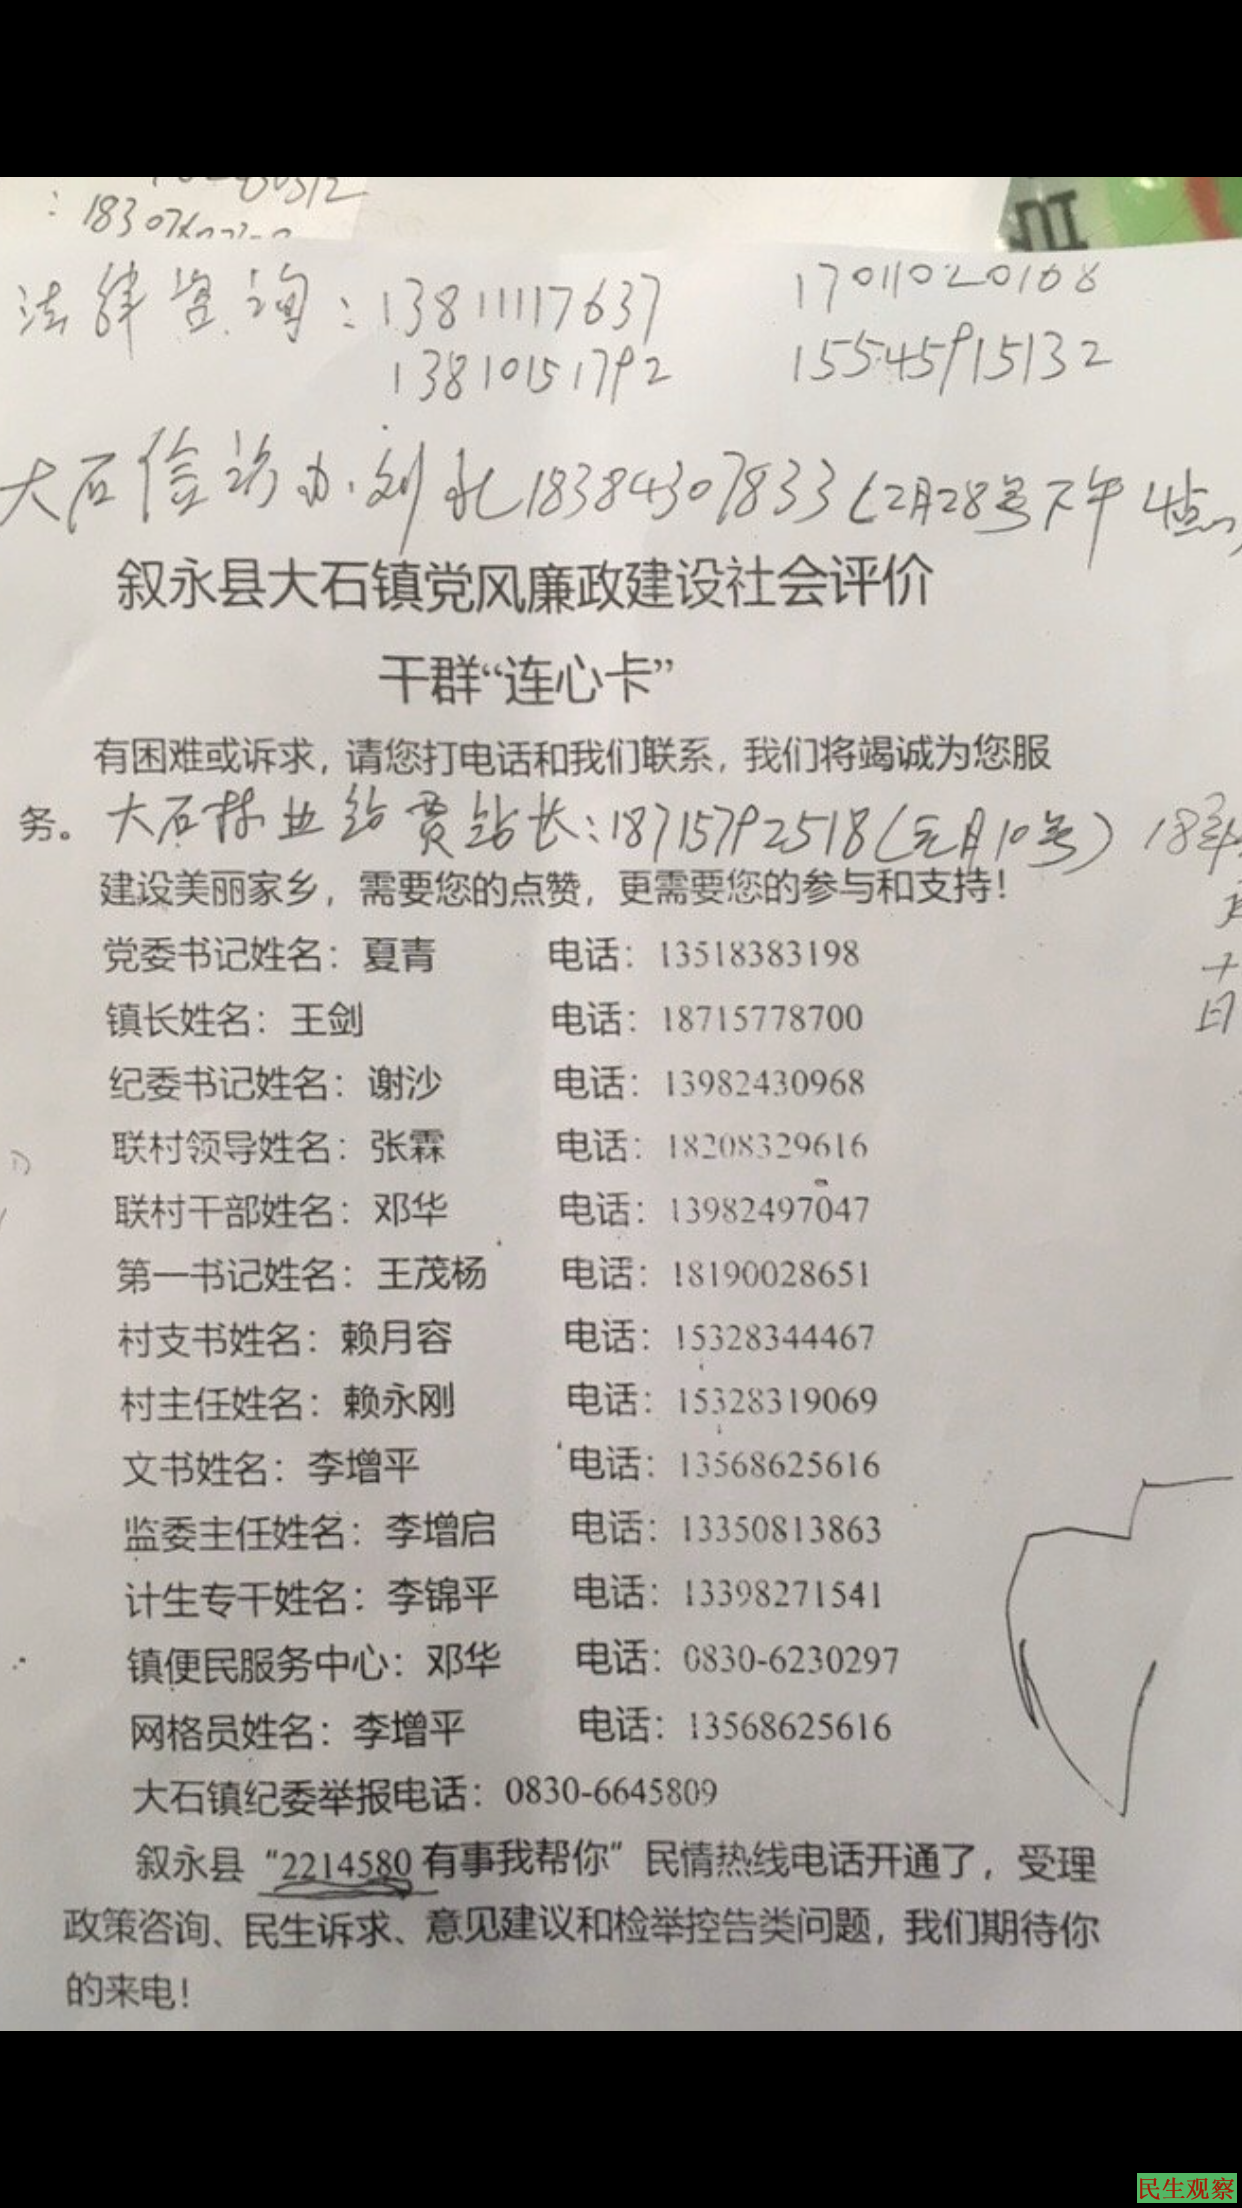 法律咨询：13811117637 17011020168
13810151792 15545915132
大石信访办.刘 18384307833（2月28号下午4点
叙永县大石镇党风廉政建设社会评价
干群“连心卡”
有困难或诉求，请您打电话和我们联系，我们将竭诚为您服
务。大石林业站贾站长：18715792518（元月10号） 18年
建设美丽家乡，需要您的点赞，更需要您的参与和支持！
党委书记姓名：夏青 电话：13518383198
镇长姓名：王剑 电话：18715778700
十
日
纪委书记姓名：谢沙 电话：13982430968
联村领导姓名：张霖 电话：18208329616
联村干部姓名：邓华 电话：13982497047
第一书记姓名：王茂杨 电话：18190028651
村支书姓名：赖月容 电话：15328344467
村主任姓名：赖永刚 电话：15328319069
文书姓名：李增平 电话：13568625616
监委主任姓名：李增启 电话：13350813863
计生专干姓名：李锦平 电话：13398271541
镇便民服务中心：邓华 电话：0830-6230297
网格员姓名：李增平 电话：13568625616
大石镇纪委举报电话：0830-6645809
叙永县“2214580有事我帮你”民情热线电话开通了，受理
政策咨询、民生诉求、意见建议和检举控告类问题，我们期待你
的来电！
民生观察